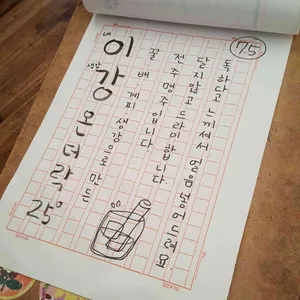 75
배
이
생강
강
온더락 25°
꿀 배 계피 생강으로 만든
전주 명주입니다.
달지않고 드라이 합니다.
독하다고 느끼셔서 얼음 넣어드려요
20X10